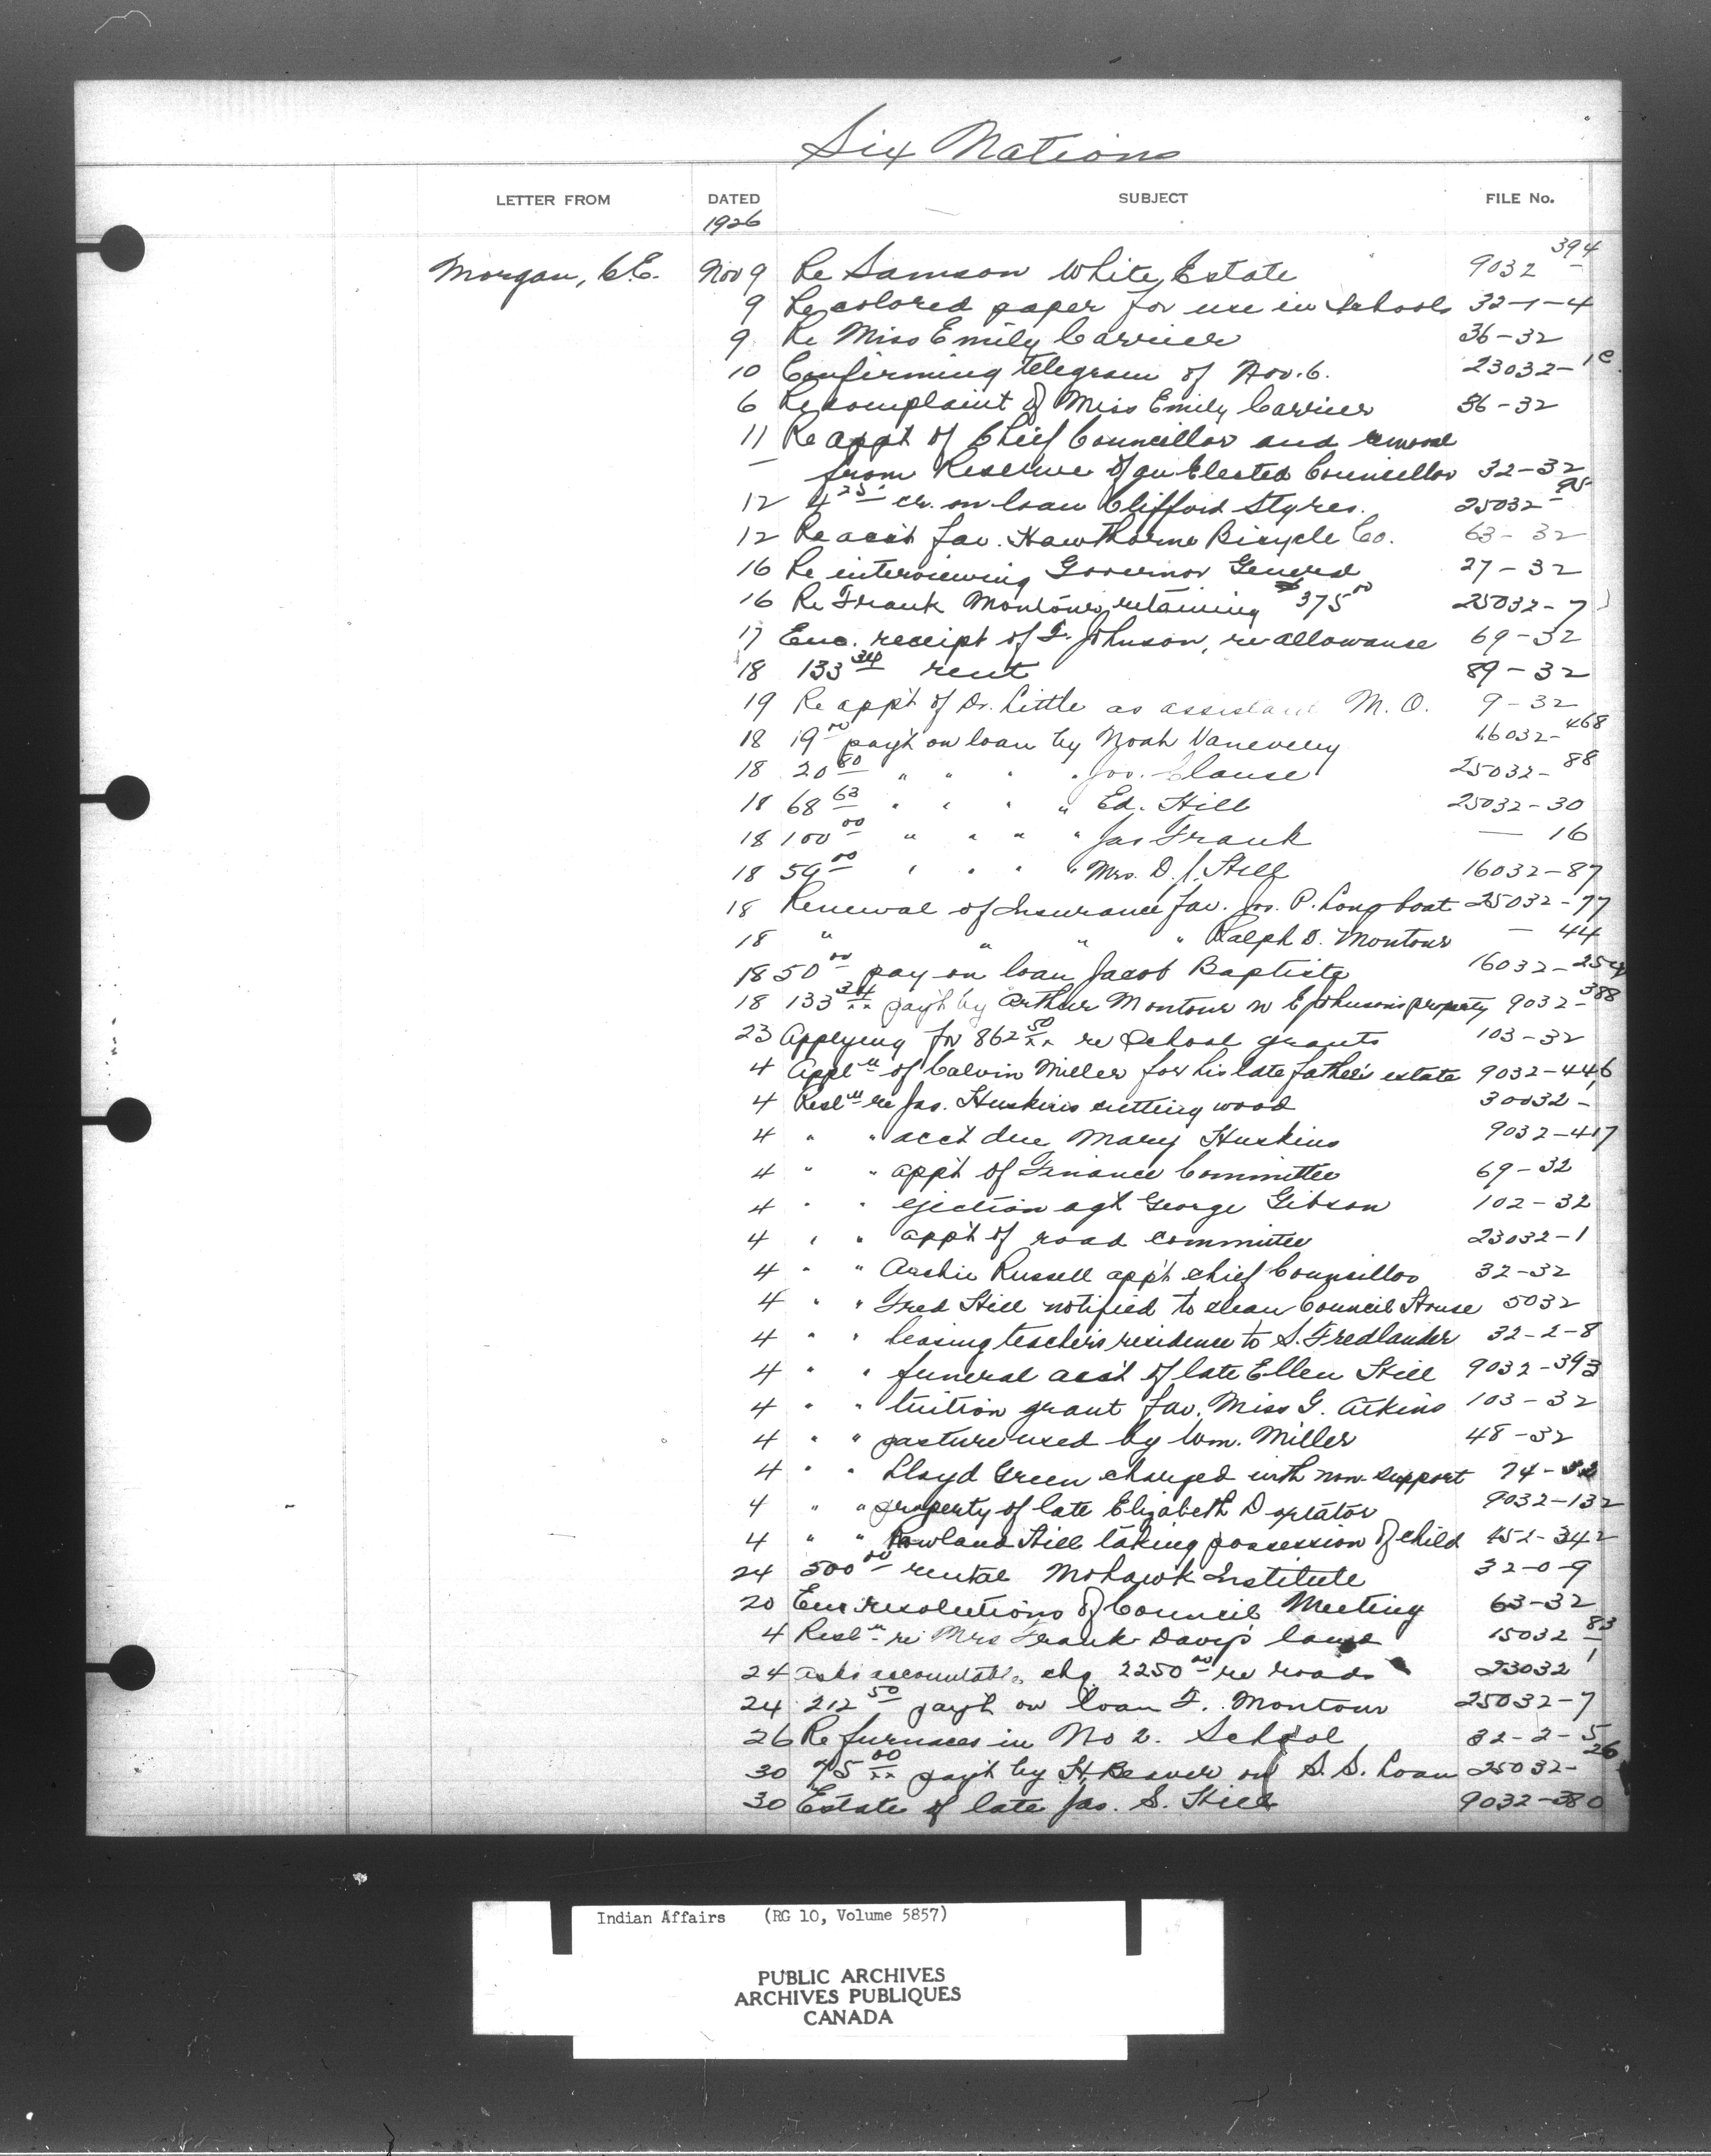 Six Nations
LETTER FROM DATED SUBJECT FILE No.
1926
Morgan, C.E. Nov 9 Re Samson White Estate 9032-394
9 Re colored paper for use in schools 32-1-4
9 Re Miss Emily Carrier 36-32
10 Confirming telegram of Nov. 6. 23032-1c
6 Re complaint of Miss Emily Carrier 36-32
11 Re app't of Chief Councillor and removal
from Reserve of an Elected Councillor 32-32
12 4 25 cr. on loan Clifford Styres. 25032-95
12 Re acc't fav. Hawthorne Bicycle Co. 63-32
16 Re interviewing Governor General 27-32
16 Re Frank Montour retaining 375 00 25032-7
17 Enc. receipt of F. Johnson, re allowance 69-32
18 133 34 rent 89-32
19 Re app't of Dr. Little as assistant M. O. 9-32
18 19 00 pay't on loan by Noah Vanevery 16032-468
18 20 80 " " " " Jos. Clause 25032-88
18 68 63 " " " " Ed. Hill 25032-30
18 100 00 " " " " Jas Frank — 16
18 59 00 " " " " Mrs. D. J. Hill 16032-87
18 Renewal of Insurance fav. Jos. P. Longboat 25032-77
18 " " " " Ralph D. Montour — 44
18 50 00 pay on loan Jacob Baptiste 16032-254
18 133 34 pay't by Arthur Montour re E Johnson's property 9032-388
23 Applying for 862 50 re School grants 103-32
4 Appl'n of Calvin Miller for his late father's estate 9032-446
4 Resl'n re Jas. Huskins cutting wood 30032-1
4 " " acc't due Mary Huskins 9032-417
4 " " app't of Finance Committee 69-32
4 " " ejection agt George Gibson 102-32
4 " " app't of road committee 23032-1
4 " " Archie Russell app't chief Councillor 32-32
4 " " Fred Hill notified to clean Council House 5032
4 " " leasing teacher's residence to S. Fredlander 32-2-8
4 " " funeral acc't of late Ellen Hill 9032-393
4 " " tuition grant fav. Miss G. Atkins 103-32
4 " " pasture used by Wm. Miller 48-32
4 " " Lloyd Green charged with non-support 74-32
4 " " property of late Elizabeth Doxtator 9032-132
4 " " Rowland Hill taking possession of child 452-342
24 500 00 rental Mohawk Institute 32-0-9
20 Enc resolutions of Council Meeting 63-32
4 Resl'n re Mrs Frank Davis 15032-83
24 asks accountable chq 2250 00 re roads 23032-1
24 212 50 pay't on loan F. Montour 25032-7
26 Re furnaces in No 2. School 32-2-5
30 75 00 pay't by H. Beaver on S. S. Loan 25032-26
30 Estate of late Jas. S. Hill 9032-380
Indian Affairs (RG 10, Volume 5857)
PUBLIC ARCHIVES
ARCHIVES PUBLIQUES
CANADA